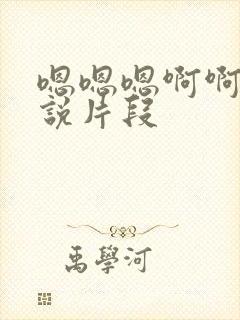 嗯嗯嗯啊啊
說片段
禹學河